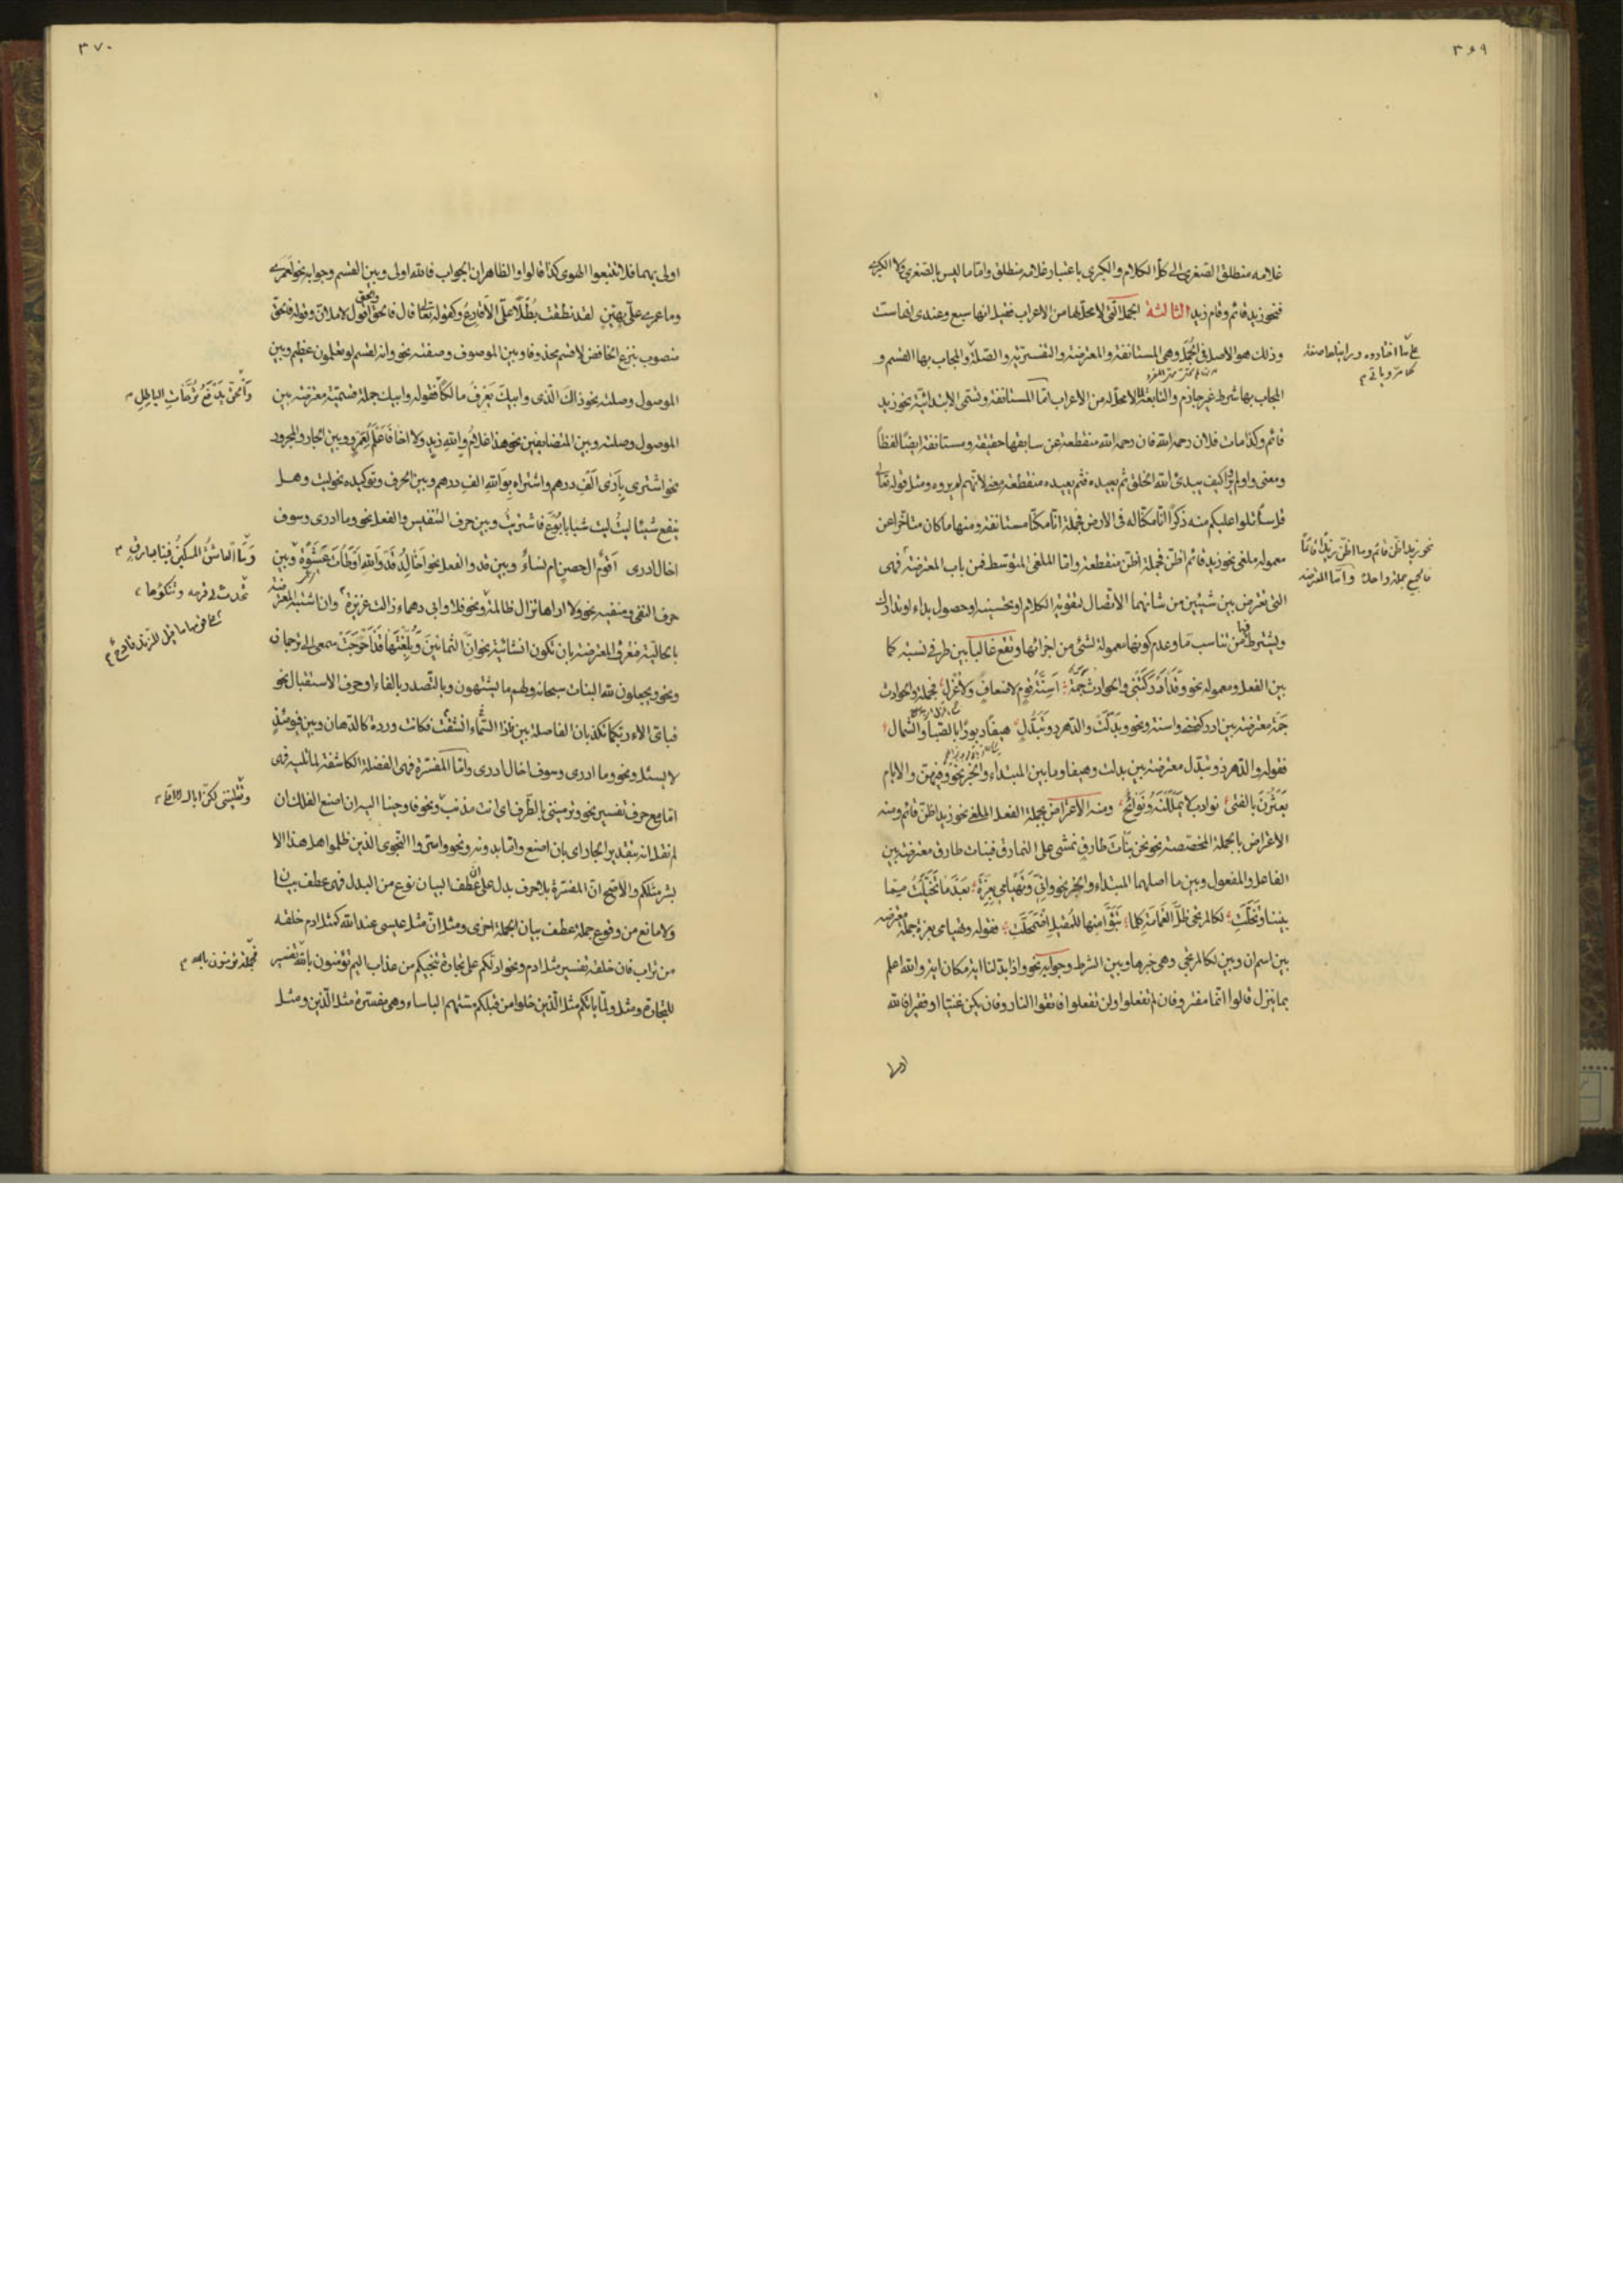 ٣٦٩
غلامه منطلق الصغرى الى كل الكلام والكبرى باعتبار غلامه منطلق واما ما ليس بالصغرى ولا الكبرى
فنحو زيد قائم وقام زيد الثالثة الجمل التى لا محل لها من الاعراب فقيل انها سبع وعندى انها ست
وذلك هو الاصل فى الجمل وهى المستانفة والمعترضة والتفسيرية والصلة والمجاب بها القسم و
المجاب بها شرط غير جازم والتابعة لما لا محل له من الاعراب اما المستانفة وتسمى الابتدائية نحو زيد
قائم وكذا مات فلان رحمه الله فان رحمه الله منقطعة عن سابقها حقيقة ومستانفة ايضا لفظاً
ومعنى واولم يروا كيف يبدئ الله الخلق ثم يعيده فثم يعيده منقطعة لانهم لم يروه ومثل قوله تعالى
قل سأتلوا عليكم منه ذكرًا انا مكنا له فى الارض فجملة انا مكنا مستانفة ومنها ما كان متاخرا عن
معموله ملغى نحو زيد قائم اظن فجملة اظن منقطعة واما الملغى المتوسط فمن باب المعترضة فهى
التى تعترض بين شيئين من شانهما الاتصال لتقوية الكلام او تحسينه او حصول بداء او تدارك
ويشترط فيها من تناسب ما وعدم كونها معمولة لشئ من اجزائها وتقع غالبًا بين طرفى نسبة كما
بين الفعل ومعموله نحو وقد ادركتنى والحوادث جمة اسنة قوم لا ضعاف ولا عزل فجملة والحوادث
جمة معترضة بين ادركتنى واسنة ونحو وبدلت والدهر ذو تبدل هيفا دبورًا بالصبا والشمال
فقوله والدهر ذو تبدل معترضة بين بدلت وهيفا وما بين المبتداء والخبر نحو وفيهن والايام
يعثرن بالفتى نوادب لا يمللنه ونوائح ومنه الاعتراض بجملة الفعل الملغى نحو زيد اظن قائم ومنه
الاعتراض بالجملة المختصة نحو نحن بنات طارق نمشى على النمارق فبنات طارق معترضة بين
الفاعل والمفعول وبين ما اصلهما المبتداء والخبر نحو وانى وتهيامى بعزة بعد ما تخليت مما
بيننا وتخلت لكالمرتجى ظل الغمامة كلما تبوأ منها للمقيل اضمحلت فقوله وتهيامى بعزة جملة معترضة
بين اسم ان وبين لكالمرتجى وهى خبرها وبين الشرط وجوابه نحو واذا بدلنا اية مكان اية والله اعلم
بما ينزل قالوا انما مفتر وفان لم تفعلوا ولن تفعلوا فاتقوا النار وفان يكن غنيا او فقيرا فالله
اولى
نحو زيد اظن قائم وما اظن زيدًا قائمًا
فالجميع جملة واحدة واما المعترضة
٣٧٠
اولى بهما فلا تتبعوا الهوى كذا قالوا والظاهر ان الجواب فالله اولى وبين القسم وجوابه نحو لعمرى
وما عمرى على بهين لقد نطقت بطلًا على الاقارع وكقوله تعالى قال فالحق والحق اقول لاملان وقوله فالحق
منصوب بنزع الخافض لاقسم محذوفا وبين الموصوف وصفته نحو وانه لقسم لو تعلمون عظيم وبين
الموصول وصلته نحو ذاك الذى وابيك يعرف مالكًا فقوله وابيك جملة قسمية معترضة بين
الموصول وصلته وبين المتضايفين نحو هذا غلام والله زيد ولا اخا فاعلم لعمرو وبين الجار والمجرور
نحو اشترى بارى الف درهم واشتراه بوالله الف درهم وبين الحرف وتوكيده نحو ليت وهل
ينفع شيئا ليت ليت شبابا بوع فاشتريت وبين حرف التنفيس والفعل نحو وما ادرى وسوف
اخال ادرى اقوم ال حصن ام نساء وبين قد والفعل نحو اخالد قد والله اوطأت عشوة وبين
حرف النفى ومنفيه نحو ولا اراها تزال ظالمة ونحو فلا وابى دهماء زالت عزيزة وان اشتبه المعترضة
بالحالية فعرف المعترضة بان تكون انشائية نحو ان الثمانين وبلغتها قد احوجت سمعى الى ترجمان
ونحو ويجعلون لله البنات سبحانه ولهم ما يشتهون وبالتصدر بالفاء او حرف الاستقبال نحو
فباى الاء ربكما تكذبان الفاصلة بين فاذا انشقت السماء فكانت وردة كالدهان وبين فيومئذ
لا يسئل ونحو وما ادرى وسوف اخال ادرى واما المفسرة فهى الفضلة الكاشفة لما تليه فهى
اما مع حرف تفسير نحو وترميننى بالطرف اى انت مذنب ونحو فاوحينا اليه ان اصنع الفلك ان
لم نقل انه بتقدير الجار اى بان اصنع واما بدونه ونحو واسروا النجوى الذين ظلموا هل هذا الا
بشر مثلكم والاصح ان المفسرة بلا حرف بدل على ان عطف البيان نوع من البدل فهى عطف بيان
ولا مانع من وقوع جملة عطف بيان لجملة اخرى ومثل ان مثل عيسى عند الله كمثل ادم خلقه
من تراب فان خلقه تفسير مثل ادم ونحو ادلكم على تجارة تنجيكم من عذاب اليم تؤمنون بالله تفسير
للتجارة ومثل ولما ياتكم مثل الذين خلوا من قبلكم مستهم الباساء وهى مفسرة مثل الذين ومثل
والحق يدفع ترهات الباطل
وتقليننى لكن اياك لا اقلى
فجملة تؤمنون بالله